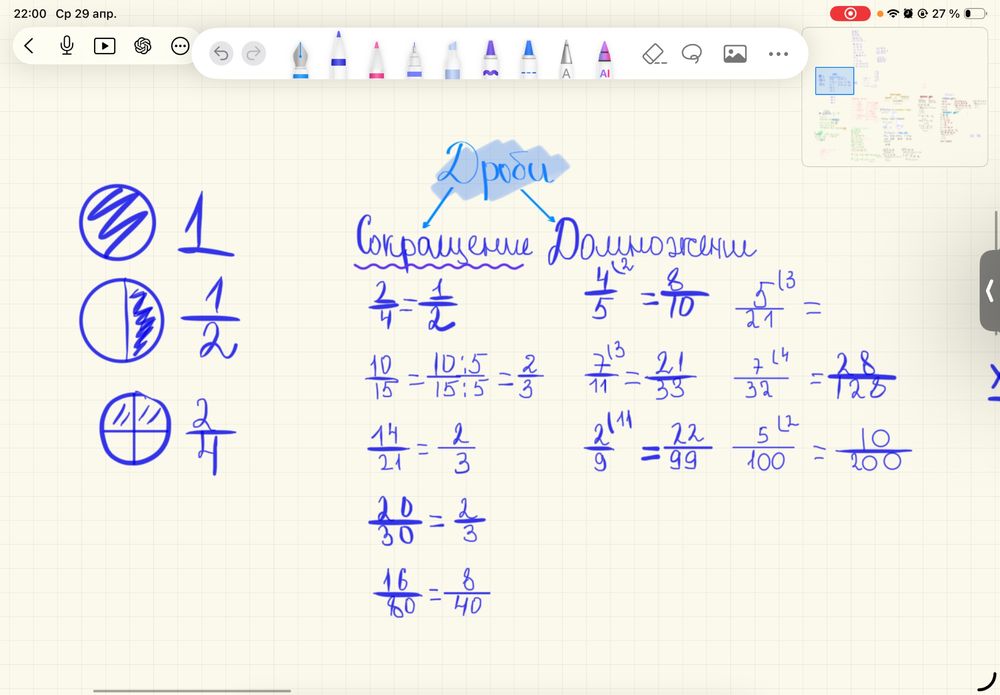 22:00 Ср 29 апр.
27 %
A
AI
Дроби
Сокращение Домножени
1
1/2
2/4
2/4 = 1/2
10/15 = 10:5/15:5 = 2/3
14/21 = 2/3
20/30 = 2/3
16/80 = 8/40
4/5 (2 = 8/10
7/11 (3 = 21/33
2/9 (11 = 22/99
5/21 (3 =
7/32 (4 = 28/128
5/100 (2 = 10/200